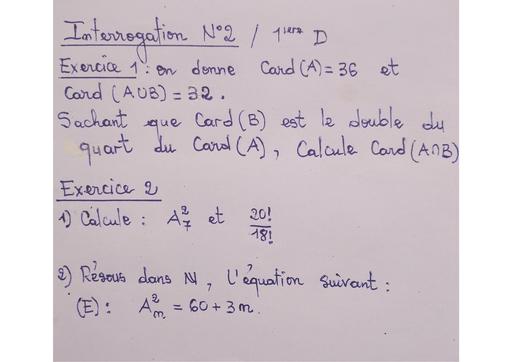 Interrogation N°2 / 1ière D
Exercice 1 : on donne Card(A)=36 et
Card (A∪B) = 32.
Sachant que Card(B) est le double du
quart du Card(A), Calcule Card(A∩B)
Exercice 2
1) Calcule : A₇² et 20!/18!
2) Résous dans ℕ, l'équation suivant :
(E) : Aₘ² = 60 + 3m.